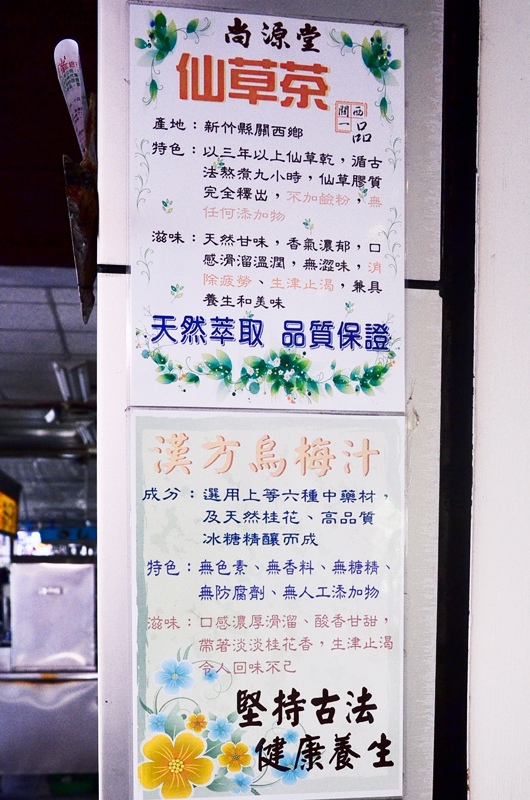 尚源堂
仙草茶
關西一品
產地：新竹縣關西鄉
特色：以三年以上仙草乾，循古
法熬煮九小時，仙草膠質
完全釋出，不加鹼粉，無
任何添加物
滋味：天然甘味，香氣濃郁，口
感滑溜溫潤，無澀味，消
除疲勞、生津止渴，兼具
養生和美味
天然萃取 品質保證
漢方烏梅汁
成分：選用上等六種中藥材，
及天然桂花、高品質
冰糖精釀而成
特色：無色素、無香料、無糖精、
無防腐劑、無人工添加物
滋味：口感濃厚滑溜、酸香甘甜，
帶著淡淡桂花香，生津止渴
令人回味不已
堅持古法
健康養生